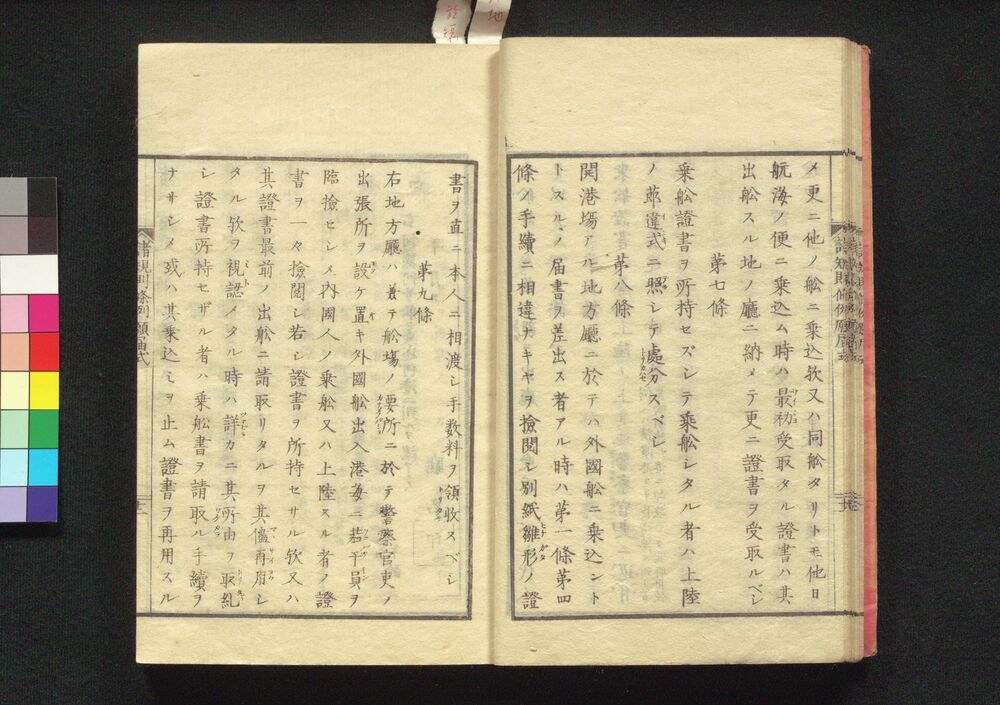 メ更ニ他ノ舩ニ乗込欤又ハ同舩タリトモ他日
航海ノ便ニ乗込ム時ハ最初受取タル證書ハ其
出舩スル地ノ廳ニ納メテ更ニ證書ヲ受取ルベシ
第七條
乗舩證書ヲ所持セズシテ乗舩シタル者ハ上陸
ノ節違式ニ照シテ處分スベシ
第八條
開港塲アル地方廳ニ於テハ外國舩ニ乗込ント
トスルノ届書ヲ差出ス者アル時ハ第一條第四
條ノ手續ニ相違ナキヤヲ撿閲シ別紙雛形ノ證
書ヲ直ニ本人ニ相渡シ手數料ヲ領收スベシ
第九條
右地方廳ハ兼テ舩塲ノ要所ニ於テ警察官吏ノ
出張所ヲ設ケ置キ外國舩出入港毎ニ若干員ヲ
臨撿セシメ内國人ノ乗舩又ハ上陸スル者ノ證
書ヲ一々撿閲シ若シ證書ヲ所持セサル欤又ハ
其證書最前ノ出舩ニ請取リタルヲ其儘再用シ
タル欤ヲ視認メタル時ハ詳カニ其所由ヲ取糺
シ證書所持セザル者ハ乗舩書ヲ請取ル手續ヲ
ナサシメ或ハ其乗込ミヲ止ム證書ヲ再用スル
諸規則條例願届式